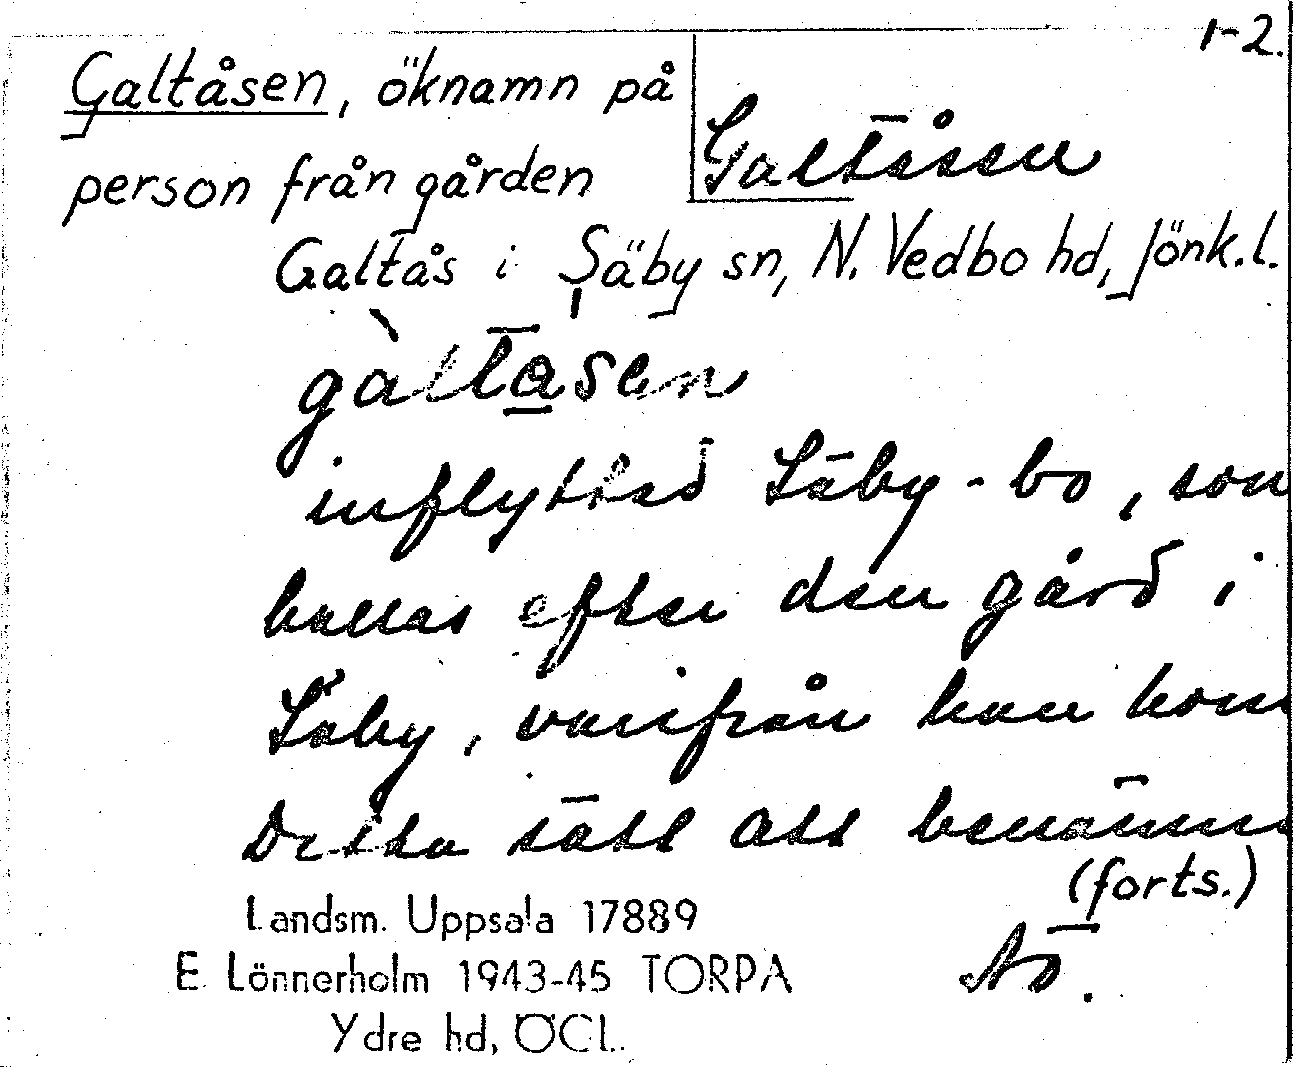 1-2.
Galtåsen, öknamn på
Galtåsen
person från gården
Galtås i Säby sn, N. Vedbo hd, Jönk.l.
gàltasen
inflyttad Säby-bo, som
kallas efter den gård i
Säby, varifrån han kom
Detta sätt att benämna
(forts.)
Landsm. Uppsala 17889
E. Lönnerholm 1943-45 TORPA
Ydre hd, ÖGL.